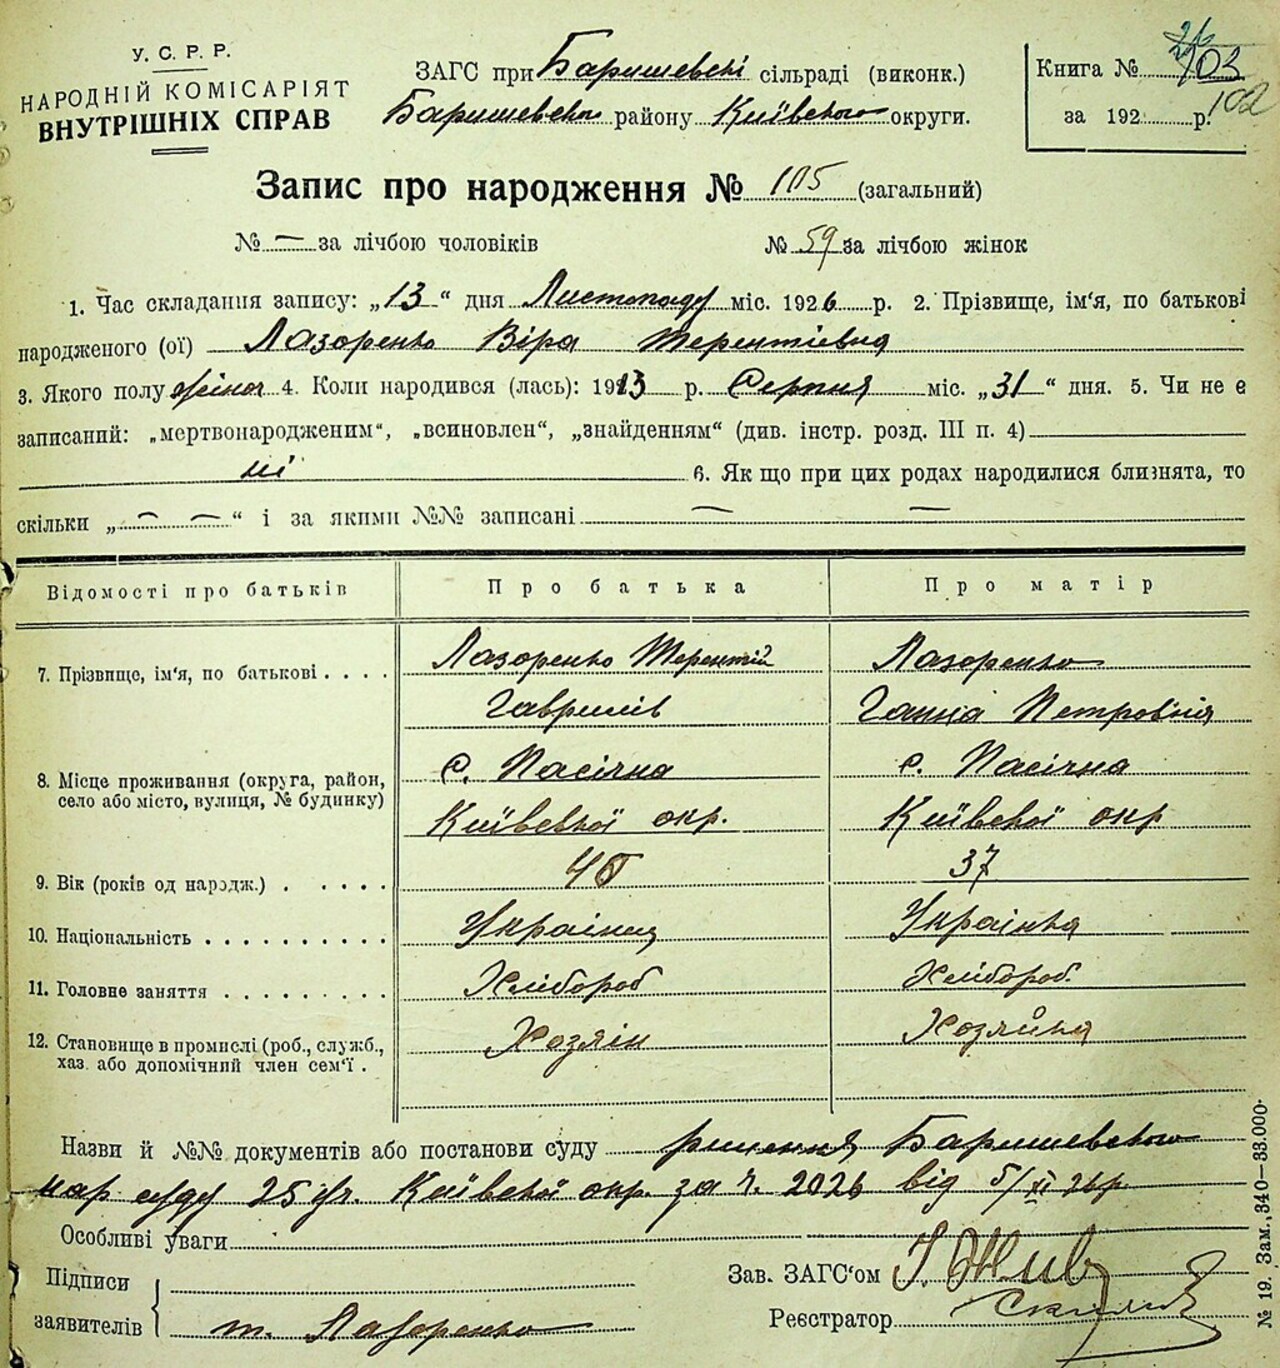 У. С. Р. Р.
НАРОДНІЙ КОМІСАРІЯТ
ВНУТРІШНІХ СПРАВ
ЗАГС при Баришевскі сільраді (виконк.)
Баришевского району Київского округи.
Книга №
103
за 192 р.
102
Запис про народження № 105 (загальний)
№ — за лічбою чоловіків № 59 за лічбою жінок
1. Час складання запису: „13“ дня Листопаду міс. 1926 р. 2. Прізвище, ім‘я, по батькові
народженого (ої) Лазоренко Віра Терентіевна
3. Якого полу жіноч 4. Коли народився (лась): 1913 р. Серпня міс. „31“ дня. 5. Чи не е
записаний: „мертвонародженим“, „всиновлен“, „знайденням“ (див. інстр. розд. III п. 4)
ні 6. Як що при цих родах народилися близнята, то
скільки „— —“ і за якими №№ записані — —
Відомості про батьків Про батька Про матір
7. Прізвище, ім‘я, по батькові . . . . Лазоренко Терентій Лазоренко
Гаврилів Ганна Петровна
8. Місце проживання (округа, район, с. Пасічна с. Пасічна
село або місто, вулиця, № будинку) Київскої окр. Київскої окр
9. Вік (років од народж.) . . . . . 37
10. Національність . . . . . . . . . . Українец Українка
11. Головне заняття . . . . . . . . . Хлібороб Хлібороб.
12. Становище в промислі (роб., служб., Хозяін Хозяйка
хаз. або допомічний член сем‘ї .
Назви й №№ документів або постанови суду рішення Баришевского
нар суду 25 діл. Київскої окр. за ч. 2026 від 5/XI 26р.
Особливі уваги
Підписи
заявителів т. Лазоренко
Зав. ЗАГС‘ом
Реєстратор
№ 19. Зам. 340—33.000.